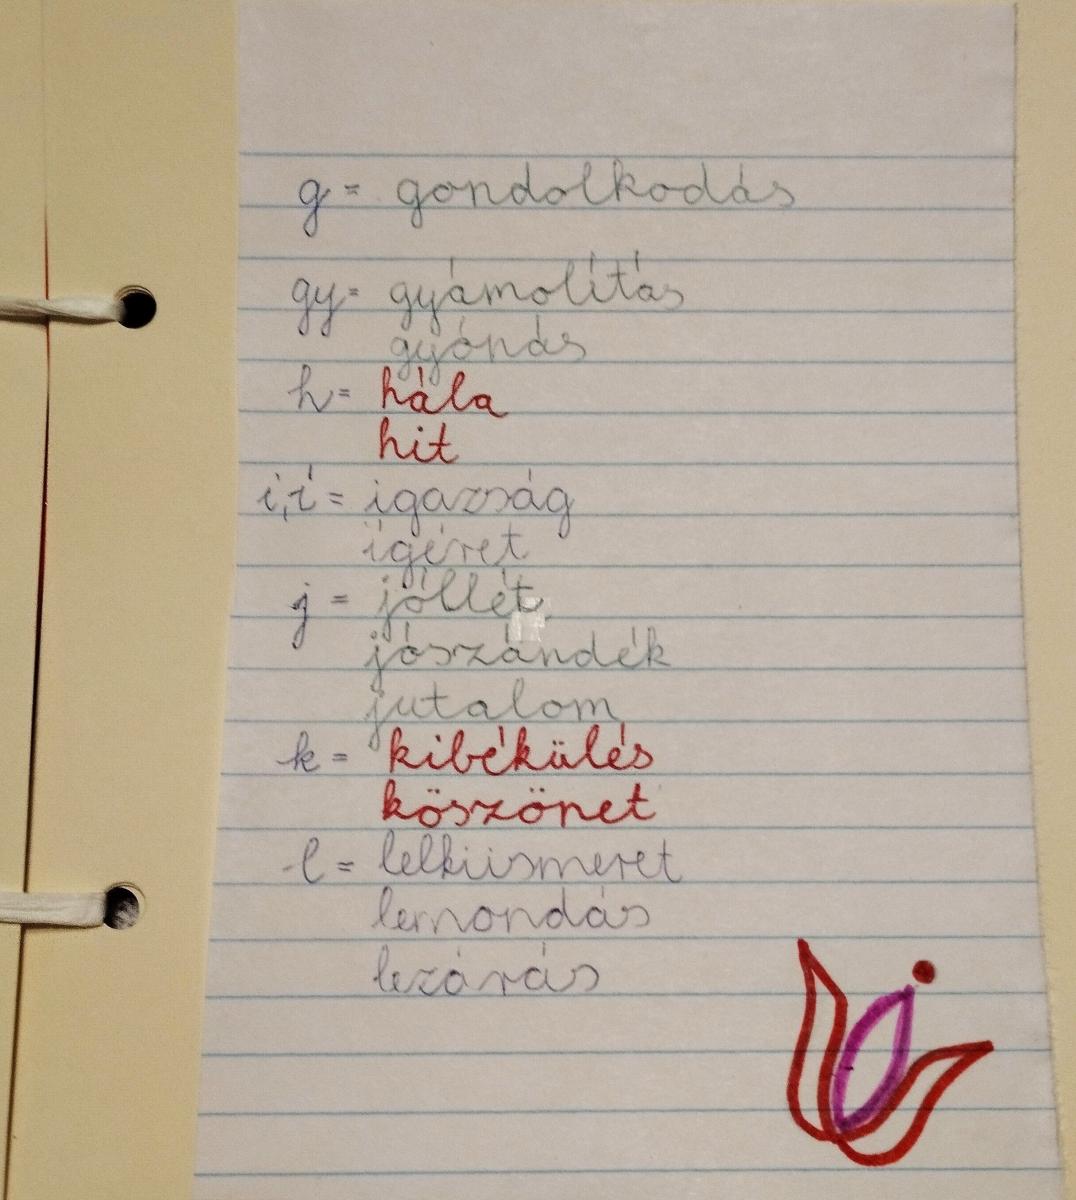 g = gondolkodás
gy= gyámolítás
gyónás
h= hála
hit
i,í = igazság
ígéret
j = jóllét
jószándék
jutalom
k = kibékülés
köszönet
l = lelkiismeret
lemondás
lezárás